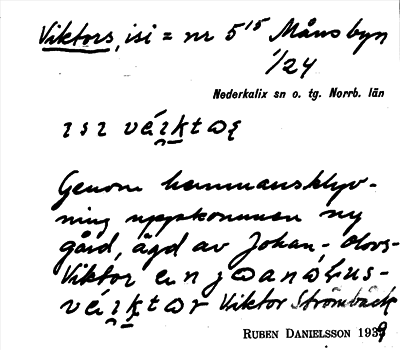 Viktors, isi = nr 5¹⁵ Månsbyn
1/24
Nederkalix sn o. tg. Norrb. län
Genom hemmansklyv-
ning uppkommen ny
gård, ägd av Johan-Olovs-
Viktor en
Viktor Strömbäck
RUBEN DANIELSSON 1939